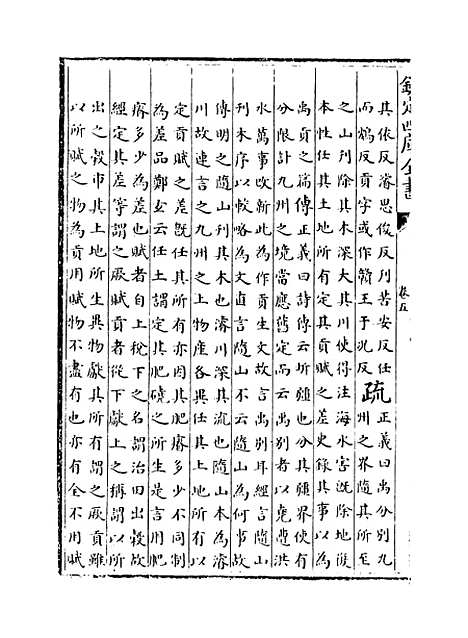 欽定四庫全書
卷五
其依反濬思俊反刋苦安反任
而鴆反貢字或作贑王于況反
疏
正義曰禹分別九
州之界隨其所至
之山刋除其木深大其川使得注海水害既除地復
本性任其土地所有定其貢賦之差史錄其事以為
禹貢之篇傳正義曰詩傳云圻疆也分其疆界使有
分限計九州之境當應舊定而云禹別者以堯遭洪
水萬事改新此為作貢生文故言禹別耳經言隨山
刋木序以較略為文直言隨山不云隨山為何事故
傳明之隨山刋其木也濬川深其流也隨山本為濬
川故連言之九州之土物産各異任其土地所有以
定貢賦之差既任其所有亦因其肥瘠多少不同制
為差品鄭玄云任土謂定其肥磽之所生是言用肥
瘠多少為差也賦者自上稅下之名謂治田出穀故
經定其差等謂之厥賦貢者從下獻上之稱謂以所
出之穀市其土地所生異物獻其所有謂之厥貢雖
以所賦之物為貢用賦物不盡有也亦有全不用賦